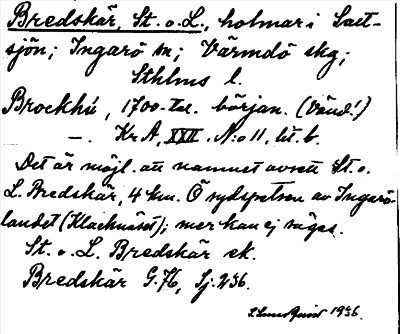 Bredskär, St. o. L., holmar i Salt-
sjön; Ingarö sn; Värmdö skg;
Sthlms l.
Brockhü, 1700-tal. början. (Vänd!)
—. Kr A, XXII. N:o 11, lit. b.
Det är möjl. att namnet avsett St. o.
L. Bredskär, 4 km. Ö sydspetsen av Ingarö-
landet (Klacknäset); mer kan ej sägas.
St. o. L. Bredskär ek.
Bredskär G.76, Sj. 236.
1936.